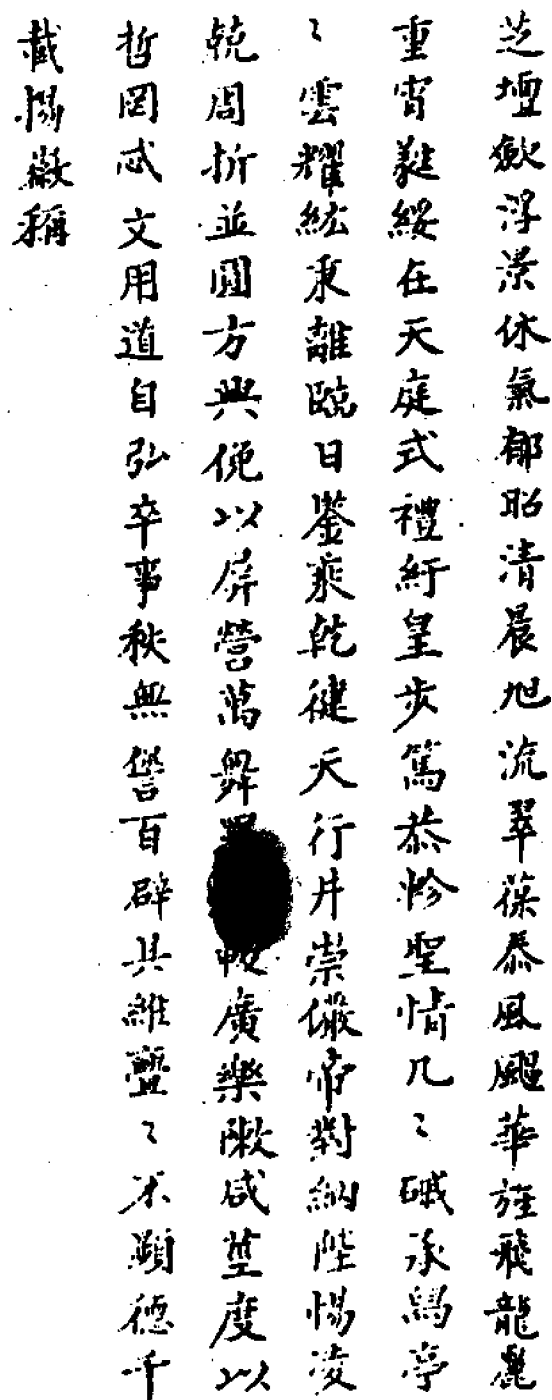 芝壇歛浮景休氣郁昭清晨旭流翠葆泰風颺華旌飛龍麗
重宵蕤綏在天庭式禮紆皇步篤恭軫聖情几〻碱承寓亭
〻雲耀紘秉離臨日鑒乘乾健天行升崇儼帝對納陛惕淩
兢周折並圓方興俛以屏營萬舞畢廣樂陳咸莖度以
哲罔忒文用道自弘卒事秩無諐百辟具維亹〻丕顯德千
載揚徽稱